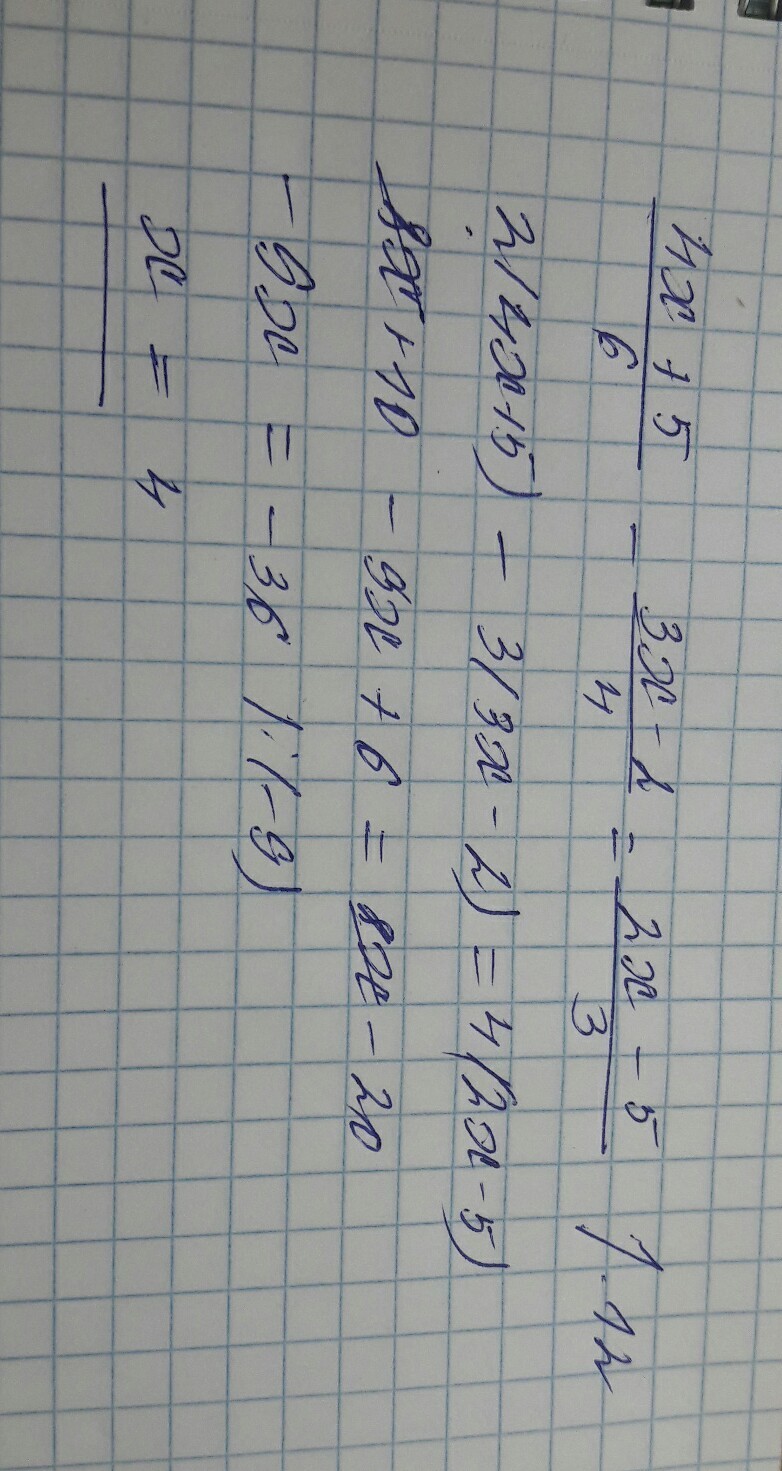 (4x + 5)/6 - (3x - 2)/4 = (2x - 5)/3 / · 12
2(4x+5) - 3(3x - 2) = 4(2x - 5)
8x + 10 - 9x + 6 = 8x - 20
-9x = -36 /:(-9)
x = 4